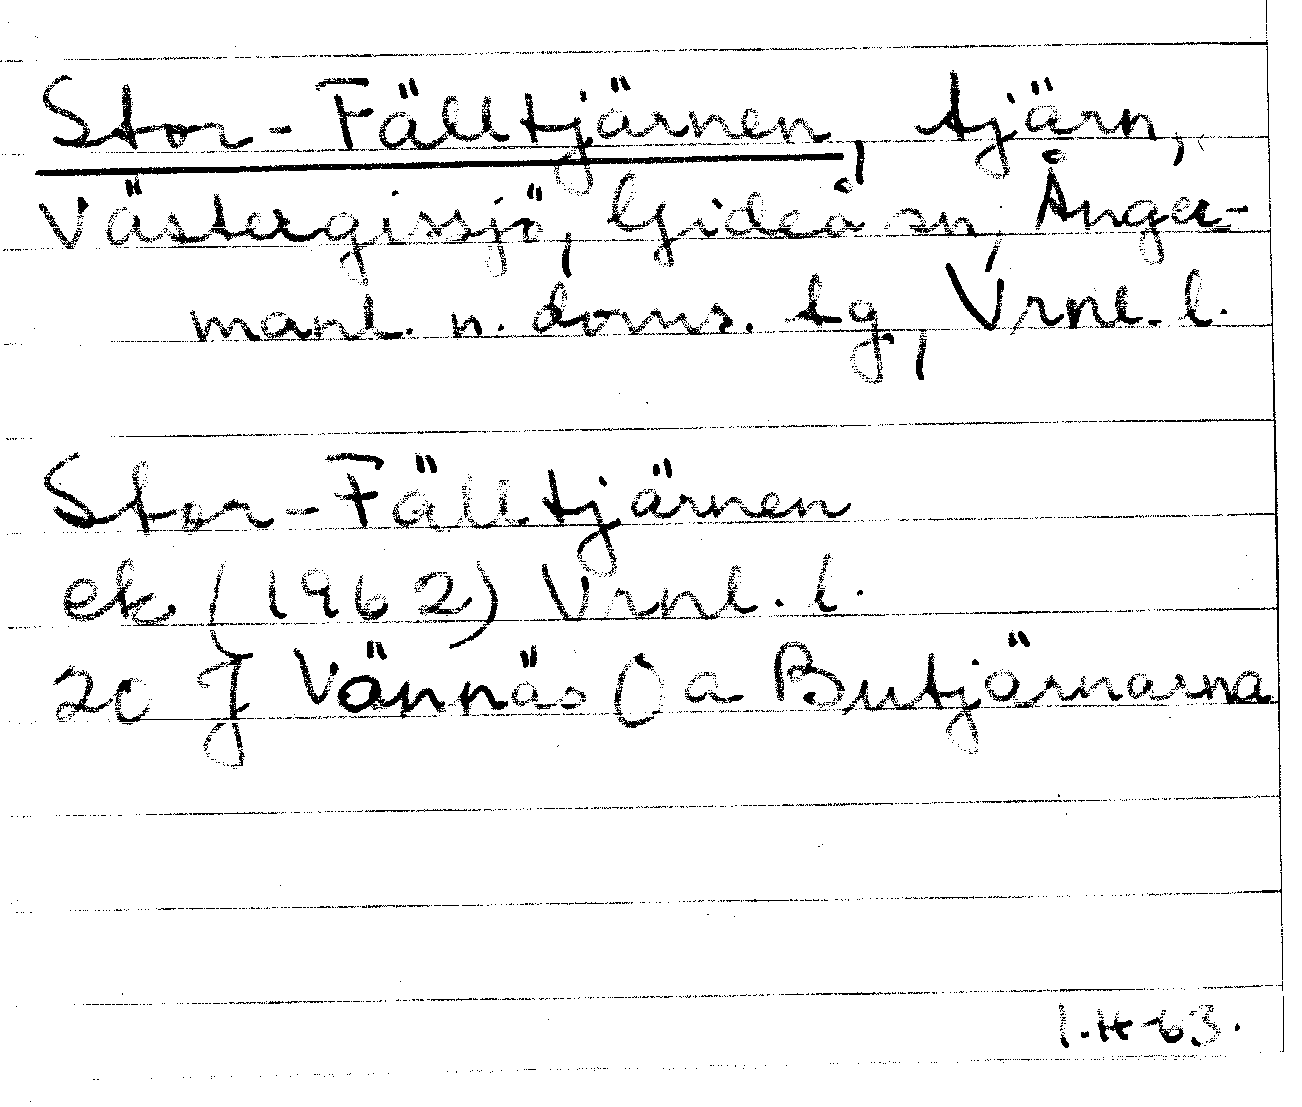 Stor-Fälltjärnen, tjärn,
Västergissjö, Gideå sn, Ånger-
manl. n. doms. tg, Vrnl. l.
Stor-Fälltjärnen
ek. (1962) Vrnl. l.
20 J Vännäs () a Butjärnarna
I.H-63.